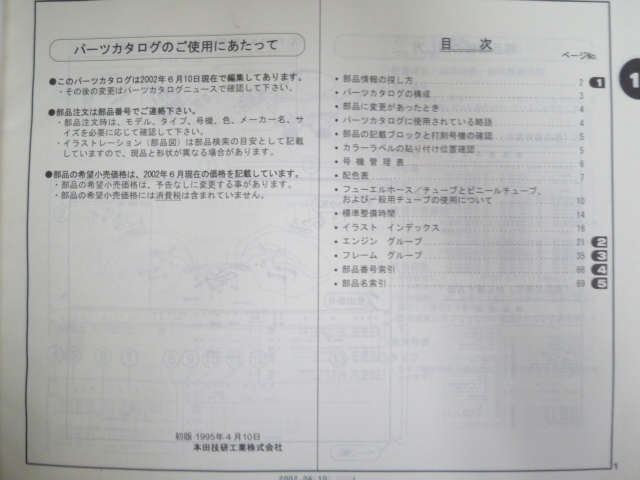 パーツカタログのご使用にあたって
●このパーツカタログは2002年6月10日現在で編集してあります。
・その後の変更はパーツカタログニュースで確認して下さい。
●部品注文は部品番号でご連絡下さい。
・部品注文時は、モデル、タイプ、号機、色、メーカー名、サ
イズを必要に応じて確認して下さい。
・イラストレーション（部品図）は部品検索の目安として記載
していますので、現品と形状が異なる場合があります。
●部品の希望小売価格は、2002年6月現在の価格を記載しています。
・部品の希望小売価格は、予告なしに変更する事があります。
・部品の希望小売価格には消費税は含まれていません。
初版 1995年4月10日
本田技研工業株式会社
目 次
ページNo.
・部品情報の探し方 2 1
・パーツカタログの構成 3
・部品に変更があったとき 4
・パーツカタログに使用されている略語 4
・部品の記載ブロックと打刻号機の確認 5
・カラーラベルの貼り付け位置確認 5
・号機管理表 6
・配色表 7
・フューエルホース／チューブとビニールチューブ、
および一般用チューブの使用について 10
・標準整備時間 14
・イラスト インデックス 16
・エンジン グループ 21 2
・フレーム グループ 35 3
・部品番号索引 66 4
・部品名索引 69 5
1
1
2002.06.10